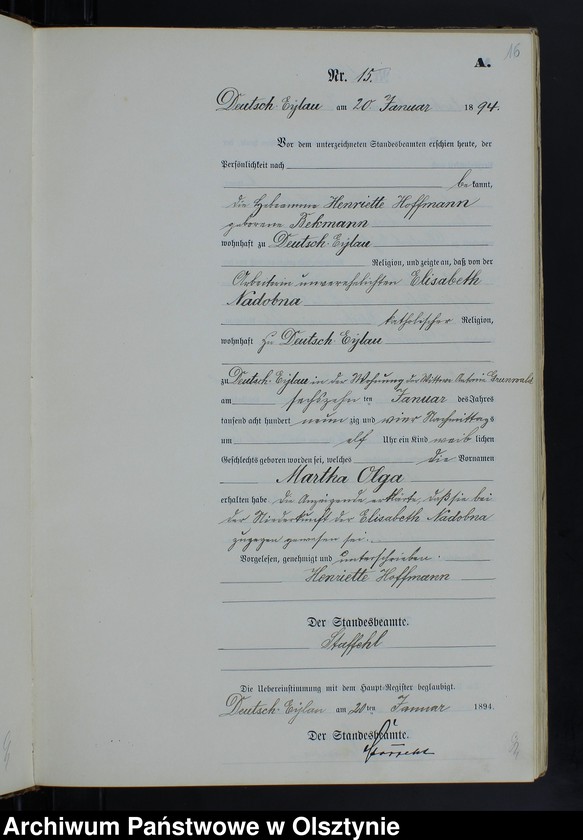 16
A.
Nr. 15.
Deutsch-Eylau am 20 Januar 1894.
Vor dem unterzeichneten Standesbeamten erschien heute, der
Persönlichkeit nach
bekannt,
die Hebeamme Henriette Hoffmann
geborene Bekmann
wohnhaft zu Deutsch-Eylau
Religion, und zeigte an, daß von der
Arbeiterin unverehelichten Elisabeth
Nadobna
katholischer Religion,
wohnhaft zu Deutsch-Eylau
zu Deutsch-Eylau in der Wohnung der Wittwe Grunwald
am sechszehn ten Januar des Jahres
tausend acht hundert neun zig und vier Nachmittags
um elf Uhr ein Kind weib lichen
Geschlechts geboren worden sei, welches die Vornamen
Martha Olga
erhalten habe. Die Anzeigende erklärte, daß sie bei
der Niederkunft der Elisabeth Nadobna
zugegen gewesen sei.
Vorgelesen, genehmigt und unterschrieben.
Henriette Hoffmann
Der Standesbeamte.
Staffehl
Die Uebereinstimmung mit dem Haupt-Register beglaubigt.
Deutsch-Eylau am 20ten Januar 1894.
Der Standesbeamte.
Archiwum Państwowe w Olsztynie